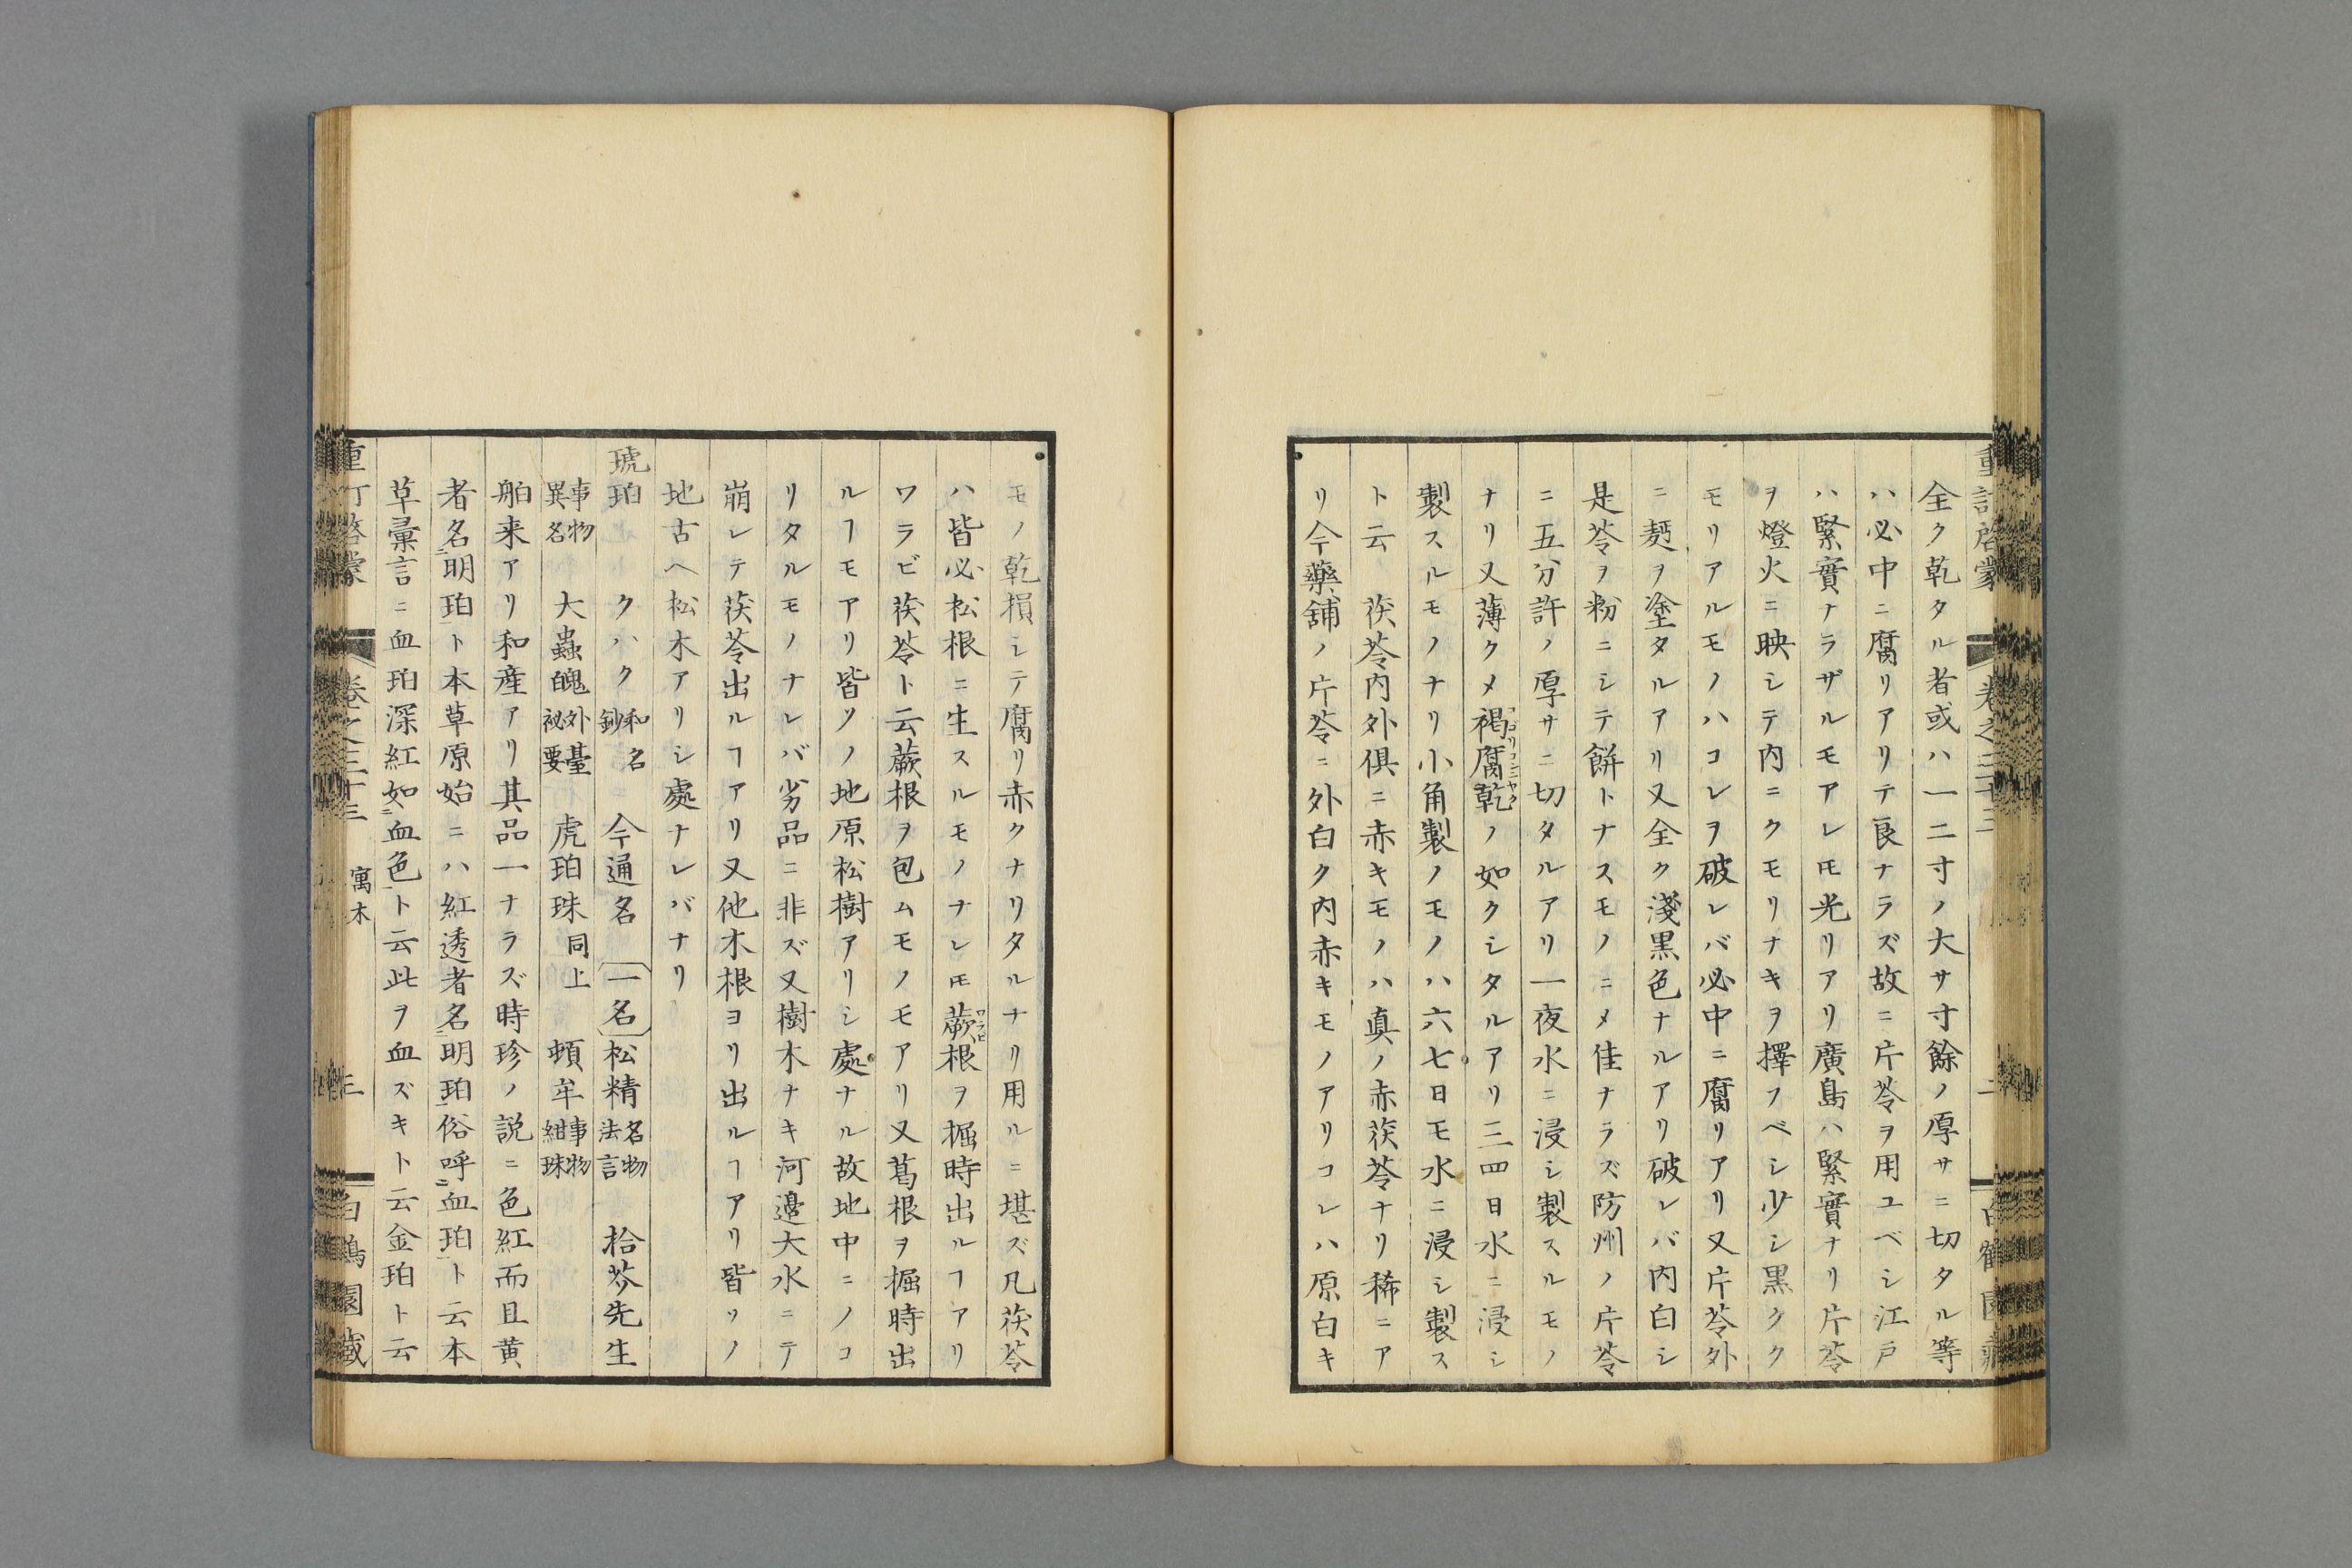 全ク乾タル者或ハ一二寸ノ大サ寸餘ノ厚サニ切タル等
ハ必中ニ腐リアリテ良ナラズ故ニ片苓ヲ用ユベシ江戸
ハ緊實ナラザルモアレ𪜈光リアリ廣島ハ緊實ナリ片苓
ヲ燈火ニ映シテ内ニクモリナキヲ擇フベシ少シ黒クク
モリアルモノハコレヲ破レバ必中ニ腐リアリ又片苓外
ニ麪ヲ塗タルアリ又全ク淺黒色ナルアリ破レバ内白シ
是苓ヲ粉ニシテ餅トナスモノニメ佳ナラズ防州ノ片苓
ニ五分許ノ厚サニ切タルアリ一夜水ニ浸シ製スルモノ
ナリ又薄クメ褐腐乾ノ如クシタルアリ三四日水ニ浸シ
製スルモノナリ小角製ノモノハ六七日モ水ニ浸シ製ス
ト云 茯苓内外俱ニ赤キモノハ真ノ赤茯苓ナリ稀ニア
リ今藥舗ノ片苓ニ外白ク内赤キモノアリコレハ原白キ
モノ乾損シテ腐リ赤クナリタルナリ用ルニ堪ズ凡茯苓
ハ皆必松根ニ生スルモノナレ𪜈蕨根ヲ掘時出ルヿアリ
ワラビ茯苓ト云蕨根ヲ包ムモノモアリ又葛根ヲ掘時出
ルヿモアリ皆ソノ地原松樹アリシ處ナル故地中ニノコ
リタルモノナレバ劣品ニ非ズ又樹木ナキ河邉大水ニテ
崩レテ茯苓出ルヿアリ又他木根ヨリ出ルヿアリ皆ソノ
地古ヘ松木アリシ處ナレバナリ
琥珀 クハク 和名鈔 今通名 一名 松精 名物法言 拾芥先生
事物異名 大蟲魄 外臺祕要 虎珀珠 同上 頓牟 事物紺珠
舶来アリ和産アリ其品一ナラズ時珍ノ説ニ色紅而且黄
者名明珀ト本草原始ニハ紅透者名明珀俗呼血珀ト云本
草彙言ニ血珀深紅如血色ト云此ヲ血ズキト云金珀ト云
寓木
三